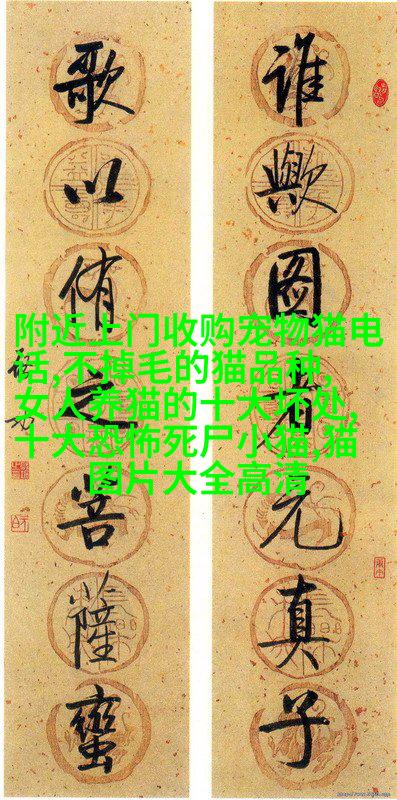 谁歟图者元真子
歌以侑之菩薩蠻
附近上门收购宠物猫电
话,不掉毛的猫品种,
女人养猫的十大坏处,
十大恐怖死尸小猫,猫
图片大全高清